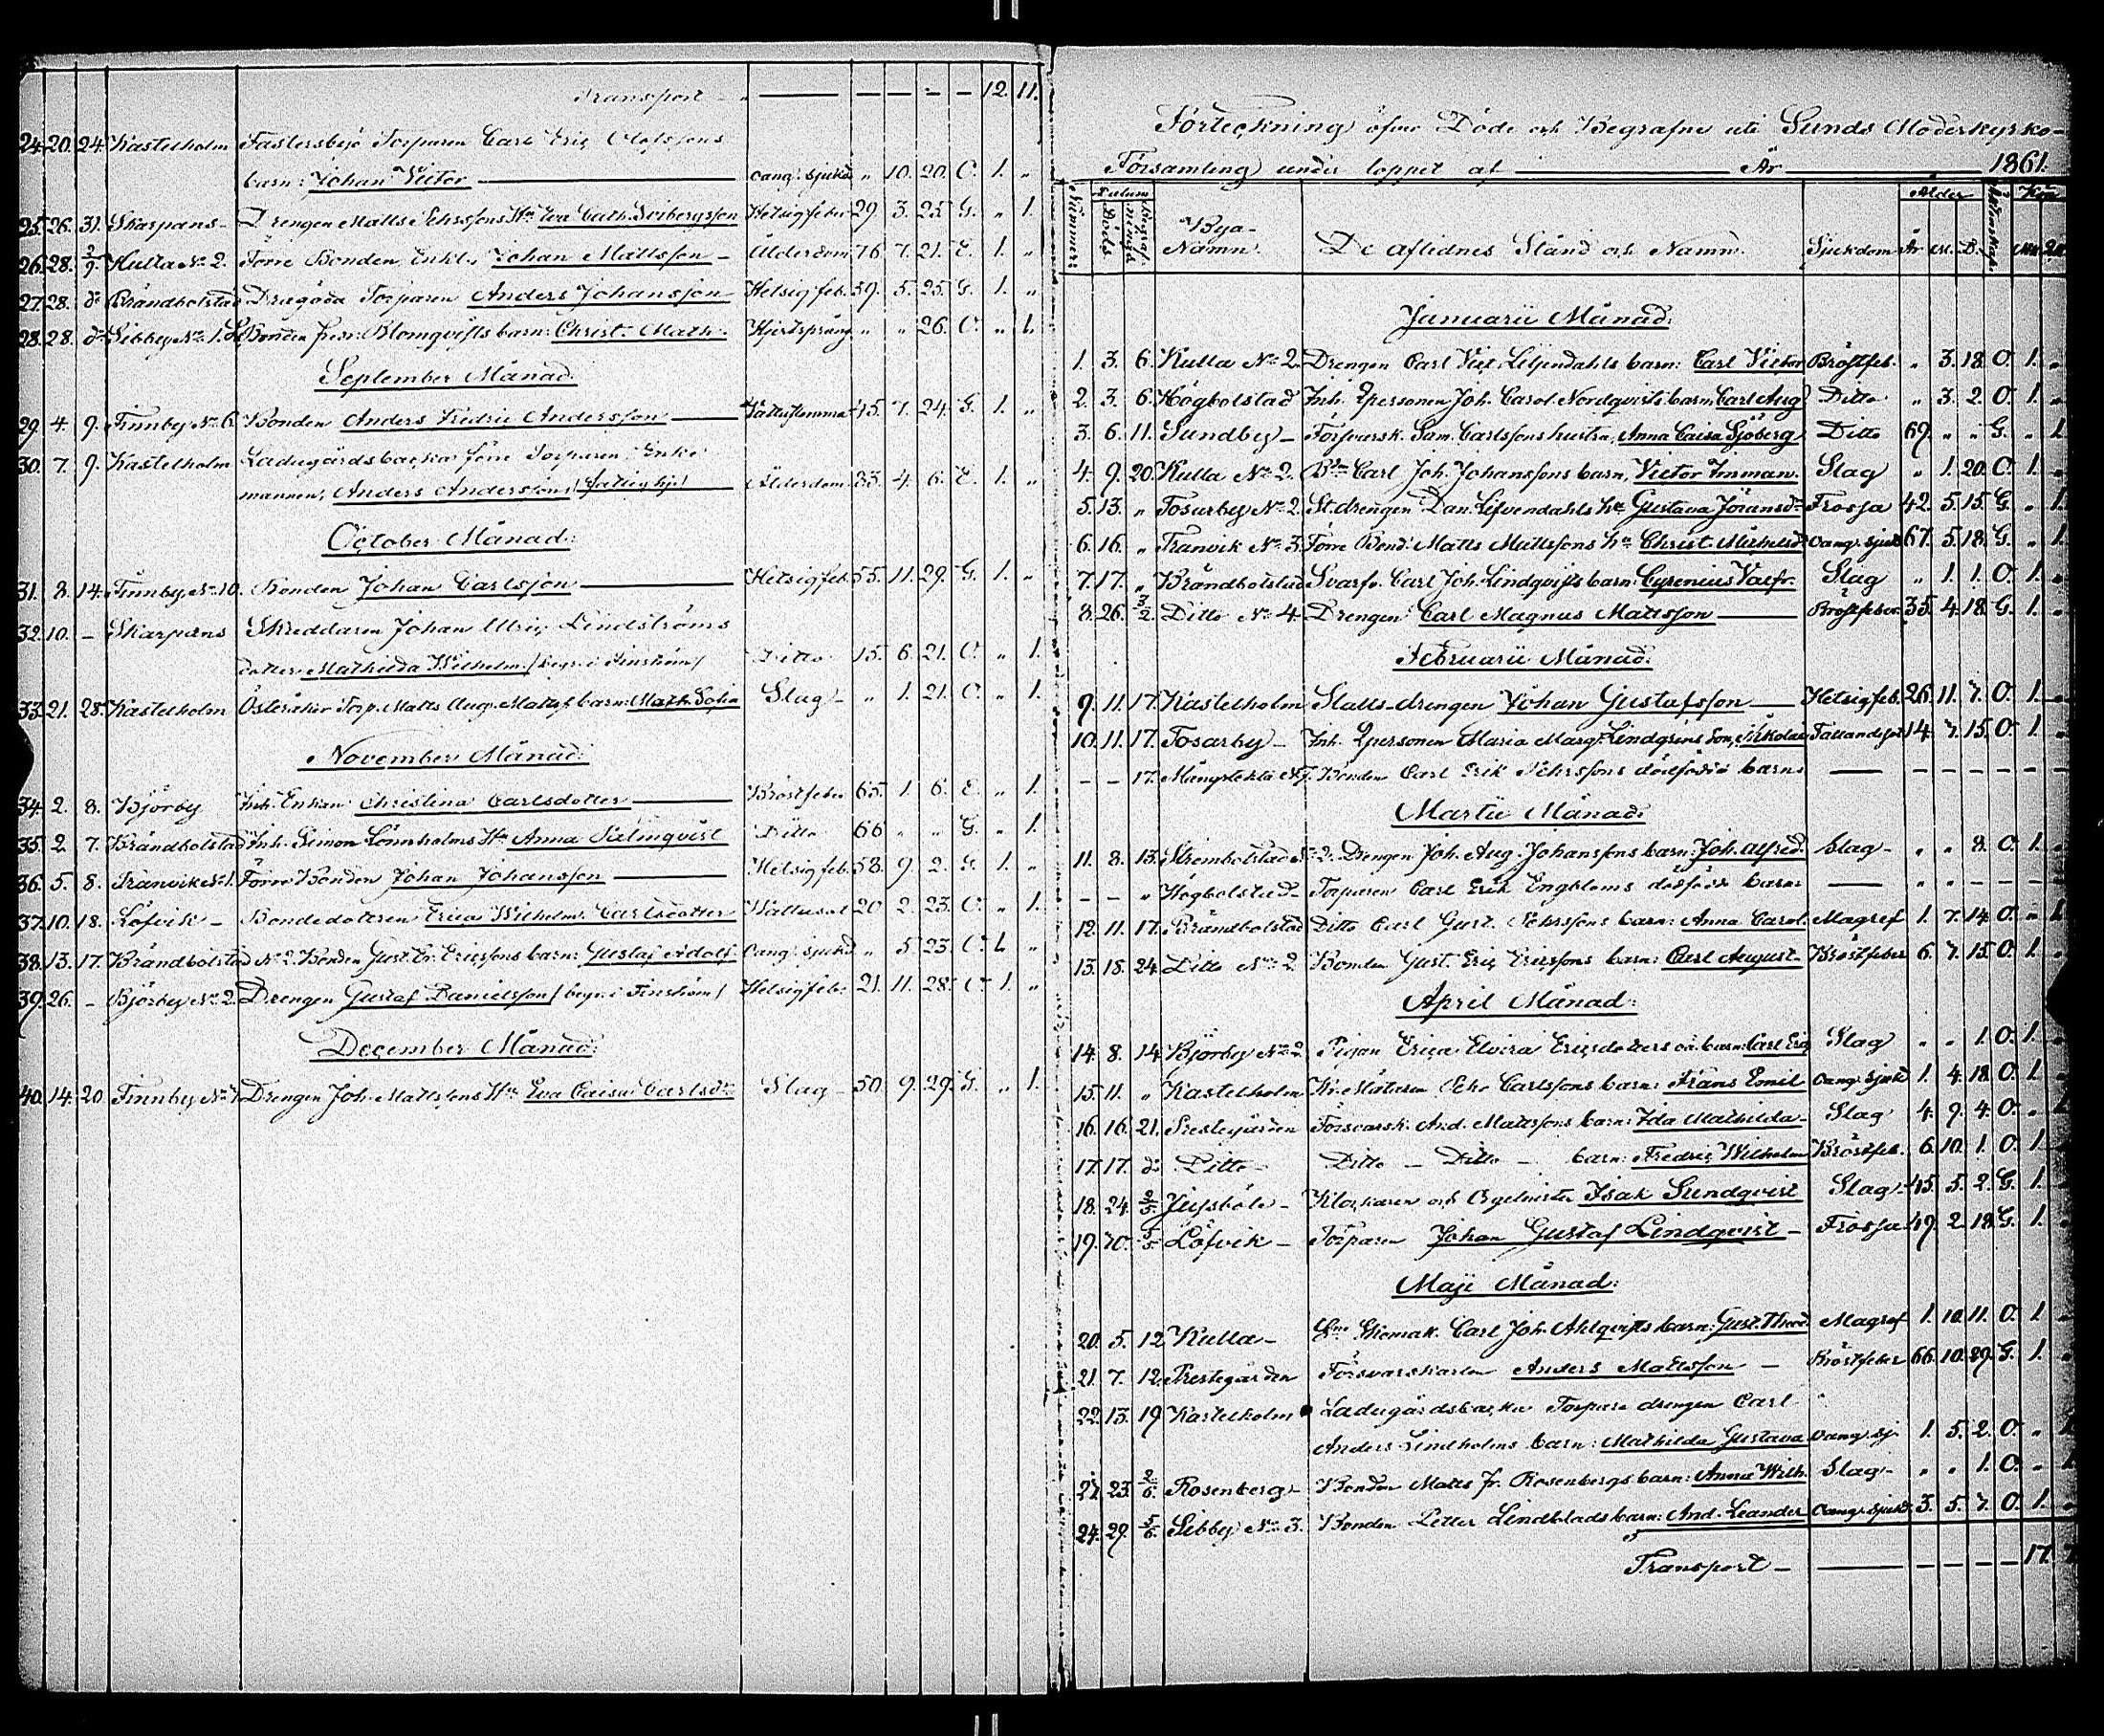 Transport - - - - 12. 11.
24. 20. 24. Kastelholm Fastersbyö Torparen Carl Eric Olofssons
barn: Johan Victor oang. sjukd. " 10. 20. O. 1. "
25. 26. 31. Skarpans Drengen Matts Pehrssons Hu Eva Cath. Hetsigfeber 29. 3. 25. G. " 1.
26. 28. 2/9. Kulla No 2. Förre Bonden, Enkl. Johan Mattsson Ålderdom 76. 7. 21. E. 1. "
27. 28. do Brändbolstad Torparen Anders Johansson Hetsigfeb. 59. 5. 25. G. 1. "
28. 28. do Sibby No 1. Bonden Blomqvists barn: Christ. Math. " " 26. O. " 1.
September Månad:
29. 4. 9. Finnby No 6. Bonden Anders Fredric Andersson 45. 7. 24. G. 1. "
30. 7. 9. Kastelholm Ladugårdsbacka förre Torparen Enke
mannen, Anders Andersson /fattighjon/ Ålderdom 83. 4. 6. E. 1. "
October Månad:
31. 8. 14. Finnby No 10. Bonden Johan Carlsson Hetsigfeb. 55. 11. 29. G. 1. "
32. 10. - Skarpans Skreddaren Johan Ulric Lindströms
dotter Mathilda Wilhelm. /begr. i Finström/ Ditto 15. 6. 21. O. " 1.
33. 21. 28. Kastelholm Österåker Torp. Matts Aug. Mattss. barn: Math. Sofia Slag - " 1. 21. O. " 1.
November Månad:
34. 2. 8. Björby Inh. Enkan Christina Carlsdotter Bröstfeber 65. 1. 6. E. " 1.
35. 2. 7. Brändbolstad Inh. Simon Lönnholms Hu Anna Palmqvist Ditto 66 " " G. " 1.
36. 5. 8. Tranvik No 1. Förre Bonden Johan Johansson Hetsigfeb. 58. 9. 2. G. 1. "
37. 10. 18. Löfvik - Bondedottren Erica Wilhelm. Carlsdotter Wattusot 20. 2. 23. O. " 1.
38. 13. 17. Brändbolstad No 2. Bonden Gust. Er. Ericssons barn: Gustaf Adolf oang. sjukd. " 5. 23. O. 1. "
39. 26. - Björby No 2. Drengen Gustaf Danielsson /begr. i Finström/ Hetsigfeb. 21. 11. 28. O. 1. "
December Månad:
40. 14. 20. Finnby No Drengen Joh. Mattssons Hu Eva Caisa Carlsdr Slag - 50. 9. 29. G. " 1.
Förteckning öfver Döde och Begrafne uti Sunds Moderkyrko-
Församling under loppet af År 1861.
Nummer: Datum Döds Begrafnings Bya-Namn. De aflidnes Stånd och Namn. Sjukdom Ålder År M. D. Kön Mk. Qk.
Januarii Månad:
1. 3. 6. Kulla No 2. Drengen Carl Vict. Liljendahls barn: Carl Victor Bröstfeb. " 3. 18. O. 1. "
2. 3. 6. Högbolstad Inh. Qpersonen Joh. Carol. Nordqvists barn: Carl Aug. Ditto " 3. 2. O. 1. "
3. 6. 11. Sundby - Försvarsk. Sam. Carlssons hustru, Anna Caisa Sjöberg Ditto 69. " " G. " 1.
4. 9. 20. Kulla No 2. Bdn Carl Joh. Johanssons barn, Victor Inman. Slag " 1. 20. O. 1. "
5. 13. " Tosarby No 2. St.drengen Dan. Lifvendahls Hu Gustava Jöransdr Frossa 42. 5. 15. G. " 1.
6. 16. " Tranvik No 3. Förre Bond. Matts Mattssons Hu Christ. Michelsdr oang. sjukd 67. 5. 18. G. " 1.
7. 17. " Brändbolstad Svarfv. Carl Joh. Lindqvists barn: Cyrenius Valfr. Slag " 1. 1. O. 1. "
8. 26. 3/2. Ditto No 4. Drengen Carl Magnus Mattsson Bröstfeber 35. 4. 18. G. 1. "
Februarii Månad:
9. 11. 17. Kastelholm Stalls-drengen Johan Gustafsson Hetsigfeb. 26. 11. 7. O. 1. "
10. 11. 17. Tosarby - Inh. Qpersonen Maria Marg. Lindgrens Son, Nikolai Fallandesot 14. 7. 15. O. 1. "
- - 17. Mångstekta No 7. Bonden Carl Erik Pehrssons dödfödda barn - - - - - -
Martii Månad:
11. 8. 13. Strömbolstad No 2. Drengen Joh. Aug. Johanssons barn: Joh. Alfred. Slag - " " 8. O. 1. "
- - " Högbolstad - Torparen Carl Erik Engbloms dödfödda barn: - " " - - - -
12. 11. 17. Brändbolstad Ditto Carl Gust. Pehrssons barn: Anna Carol. Magref 1. 7. 14. O. " 1.
13. 18. 24. Ditto No 2. Bonden Gust. Eric Ericssons barn: Carl August. Bröstfeber 6. 7. 15. O. 1. "
April Månad:
14. 8. 14. Björby No 2. Pigan Erica Elvira Ericsdotters oä. barn: Carl Eric Slag " " 1. O. 1. "
15. 11. " Kastelholm Pehr Carlssons barn: Frans Emil oang. sjukd 1. 4. 18. O. 1. "
16. 16. 21. Prestegården Försvarsk. And. Mattssons barn: Ida Mathilda Slag 4. 9. 4. O. " 1.
17. 17. do Ditto - Ditto - Ditto - barn: Fredric Wilhelm Bröstfeb. 6. 10. 1. O. 1. "
18. 24. 2/5. Jussböle - Klockaren och Orgelnisten Isak Sundqvist Slag 45. 5. 2. G. 1. "
19. 5/5. Löfvik - Torparen Johan Gustaf Lindqvist - Frossa 49. 2. 18. G. 1. "
Maji Månad:
20. 5. 12. Kulla - Skomak. Carl Joh. Ahlqvists barn: Gust. Magref 1. 10. 11. O. 1. "
21. 7. 12. Prestegården Försvarskarlen Anders Mattsson - Bröstfeber 66. 10. 29. G. 1. "
22. 13. 19. Kastelholm Ladugårdsbacka Torpare drengen Carl
Anders Lindholms barn: Mathilda Gustava oang. sj. 1. 5. 2. O. " 1.
23. 2/6. Rosenberg - Bonden Matts Fr. Rosenbergs barn: Anna Wilh. Slag - " " 1. O. " 1.
24. 29. 5/6. Sibby No 3. Bonden Petter Lindblads barn: And. Leander oang. sjukd. 3. 5. 7. O. 1. "
Transport - - - - - 17. 7